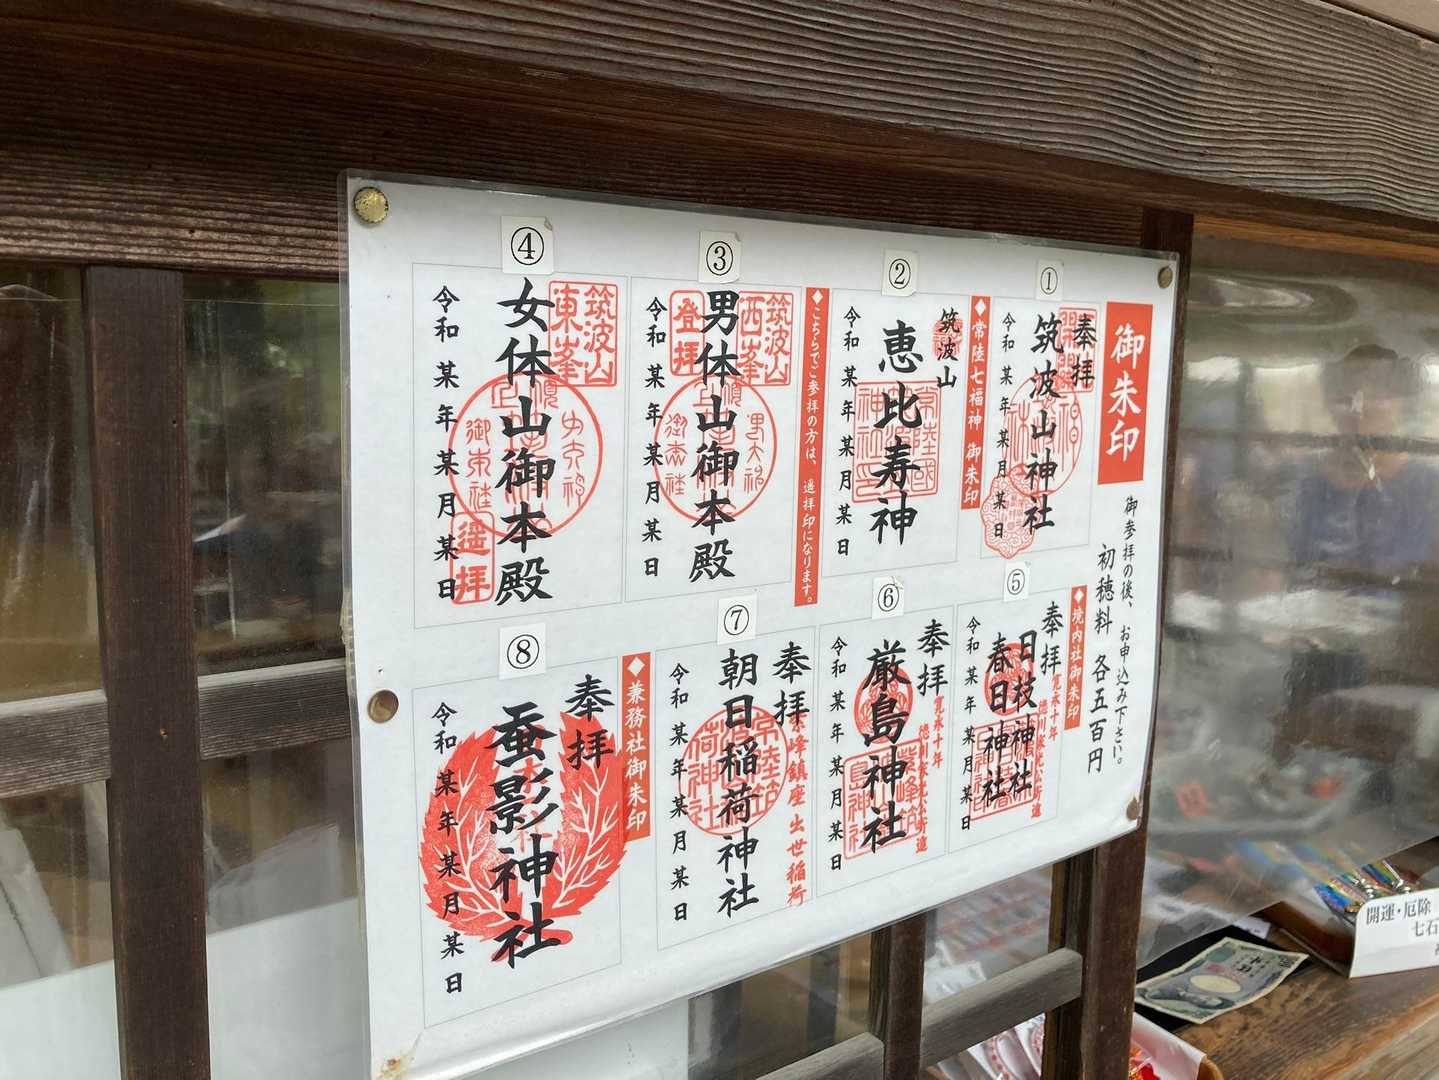 御朱印
御参拝の後、お申込み下さい。
初穂料 各五百円
①
奉拝
筑波山神社
令和 某年 某月 某日
◆常陸七福神 御朱印
②
筑波山
恵比寿神
令和 某年 某月 某日
◆こちらでご参拝の方は、遥拝印になります。
③
筑波山
西峯
登拝
男体山御本殿
令和 某年 某月 某日
④
筑波山
東峯
女体山御本殿
遥拝
令和 某年 某月 某日
◆境内社御朱印
⑤
奉拝
寛永十年
日枝神社
春日神社
令和 某年 某月 某日
⑥
奉拝
寛永十年
厳島神社
令和 某年 某月 某日
⑦
奉拝
朝日稲荷神社
出世稲荷
令和 某年 某月 某日
◆兼務社御朱印
⑧
奉拝
蚕影神社
令和 某年 某月 某日
開運・厄除
七石